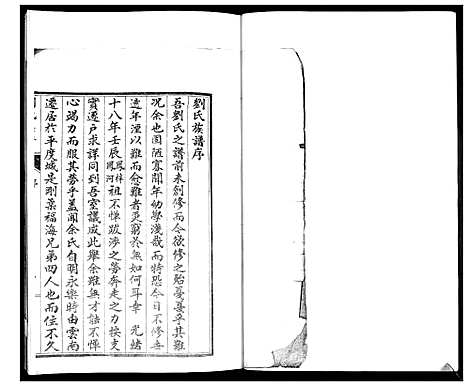 劉氏族譜序
吾劉氏之譜前未創修而今欲修之貽憂憂乎其難
況余也固陋寡聞年幼學淺哉而特恐今日不修
遠年湮以難而愈難者更窮於無如何耳幸 光緒
十八年壬辰鳳梓鳳河祖不憚跋涉之勞奔走之力按支
實遷戶求詳同到吾室議成此舉余雖無才詎不憚
心竭力而服其勞乎蓋聞余氏自明永樂時由雲南
遷居於平度城是時葉福海兄弟四人也而住不久